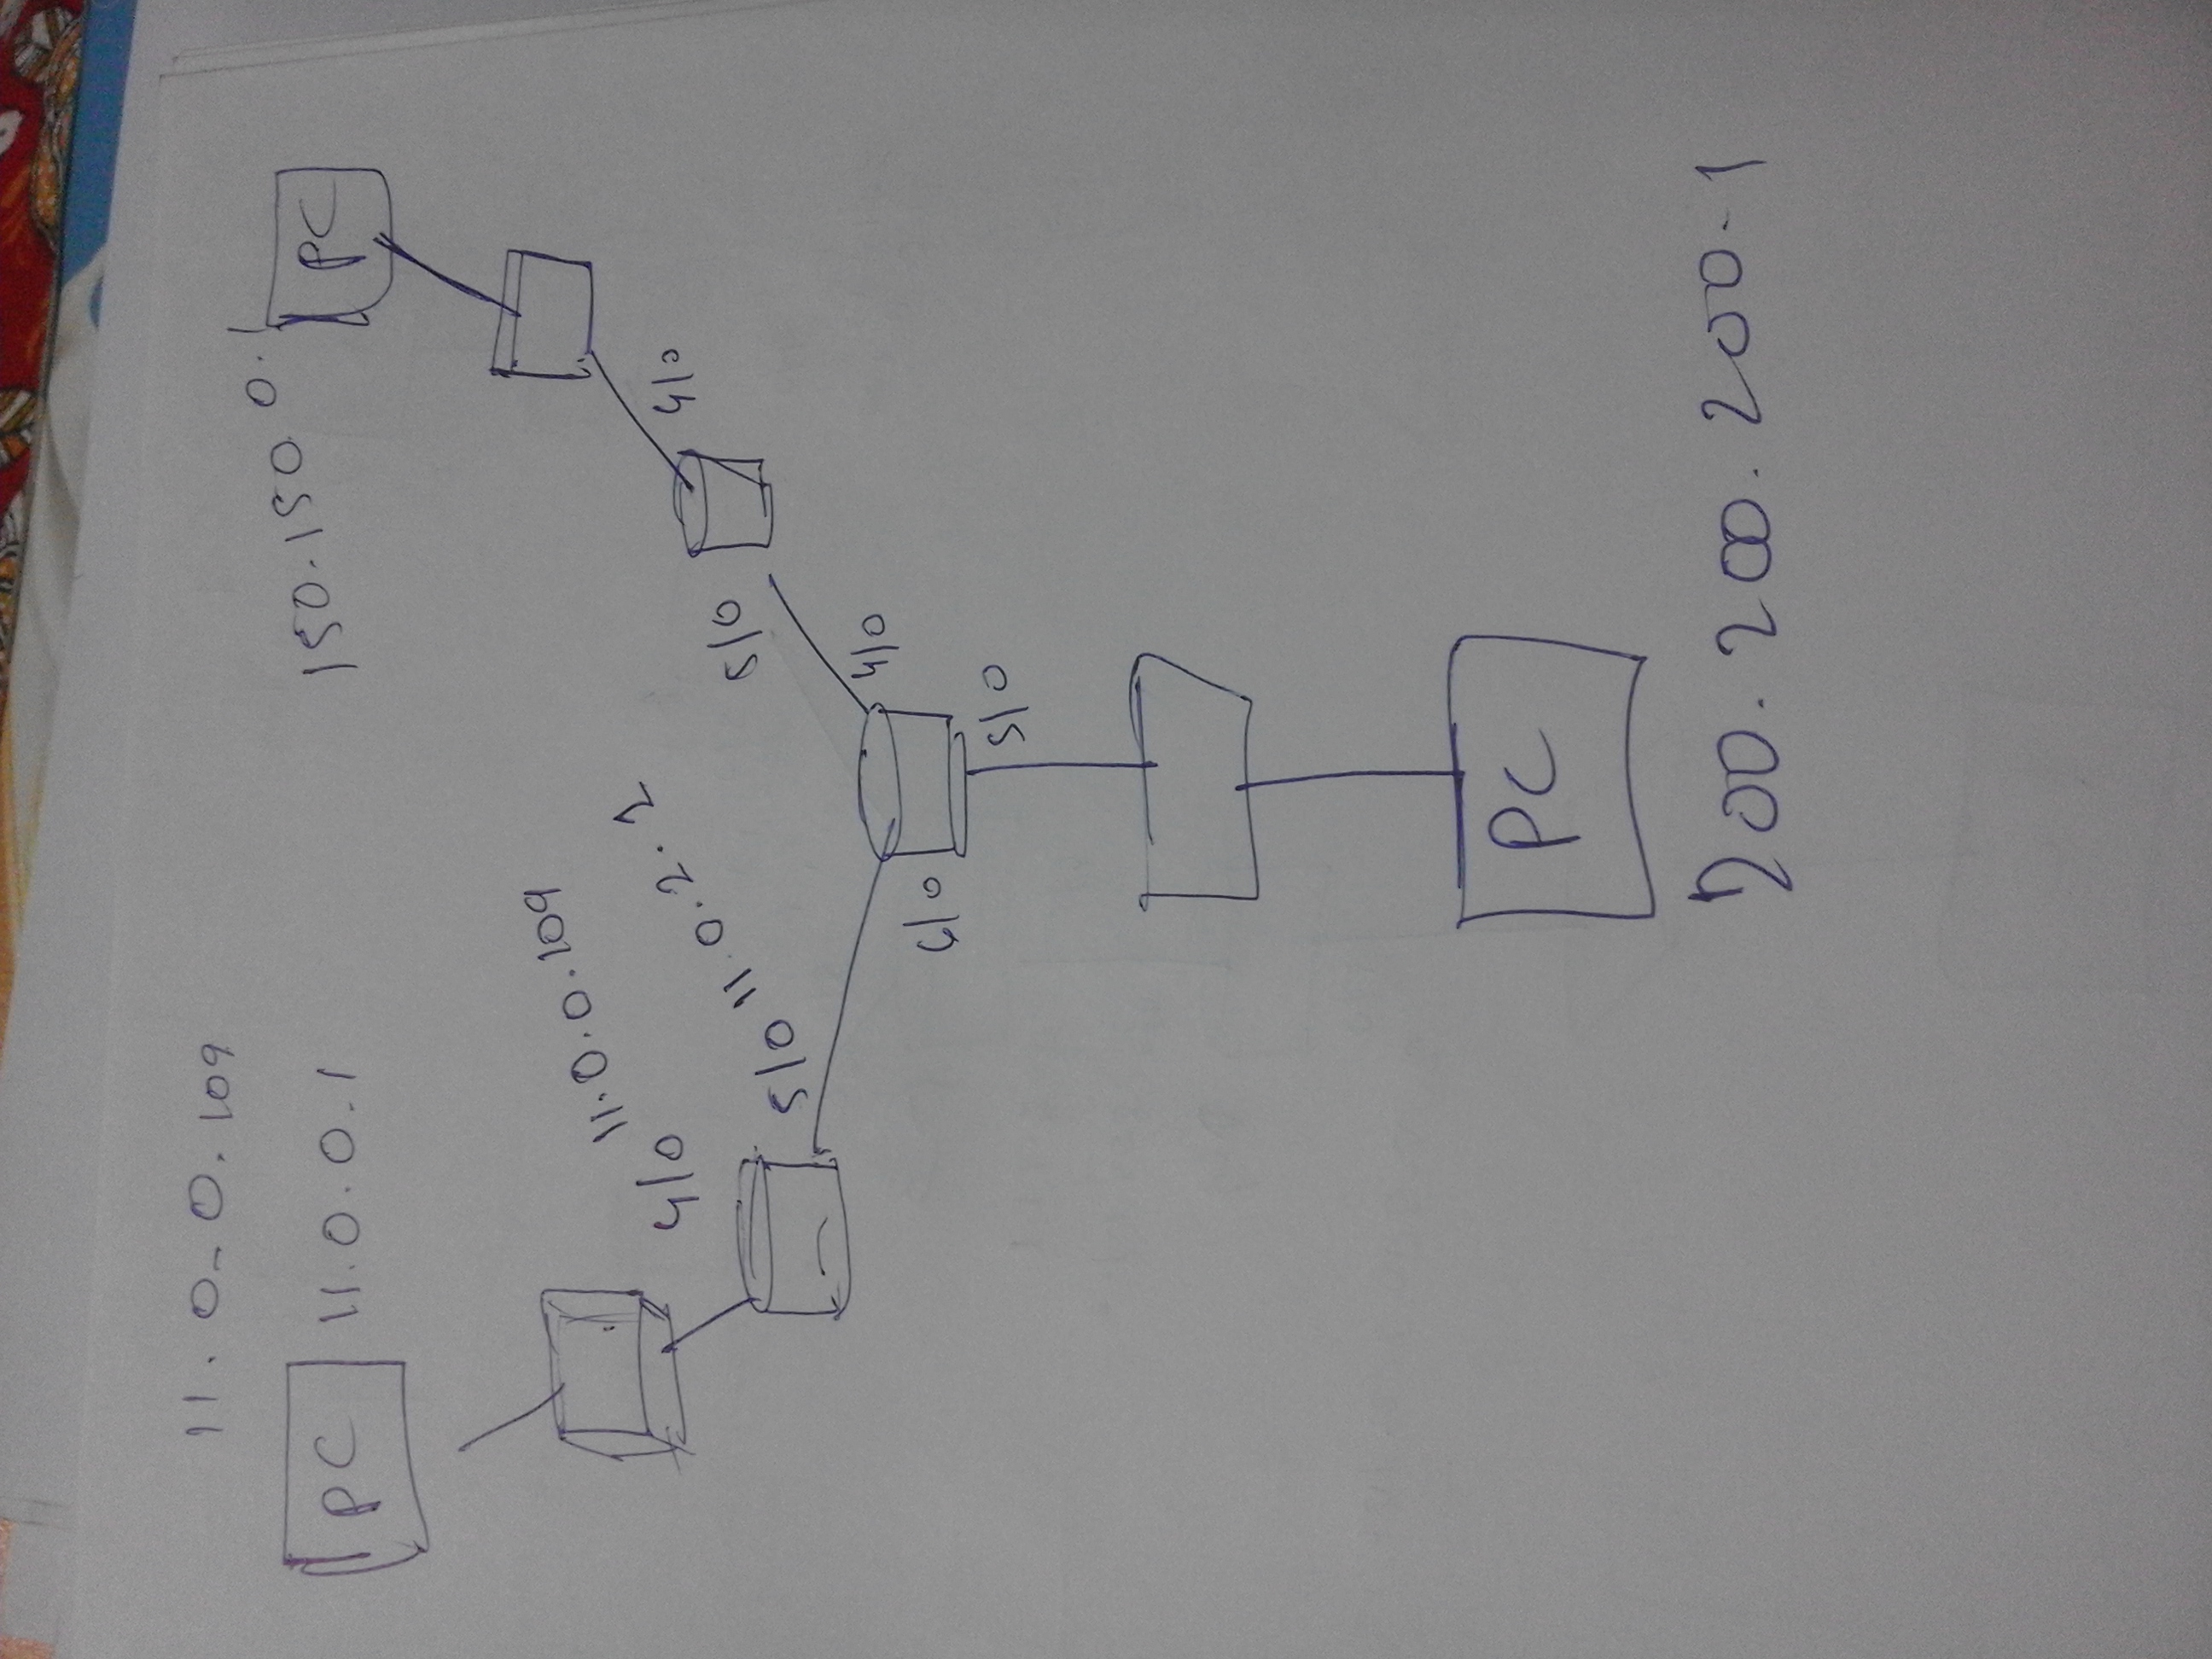 11.0-0.109
PC 11.0.0.1
150.150 0.1 PC
4/0 11.0.0.109
5/0 11.0.2.2
5/0
4/0
6/0
4/0
5/0
PC
200.200.200.1